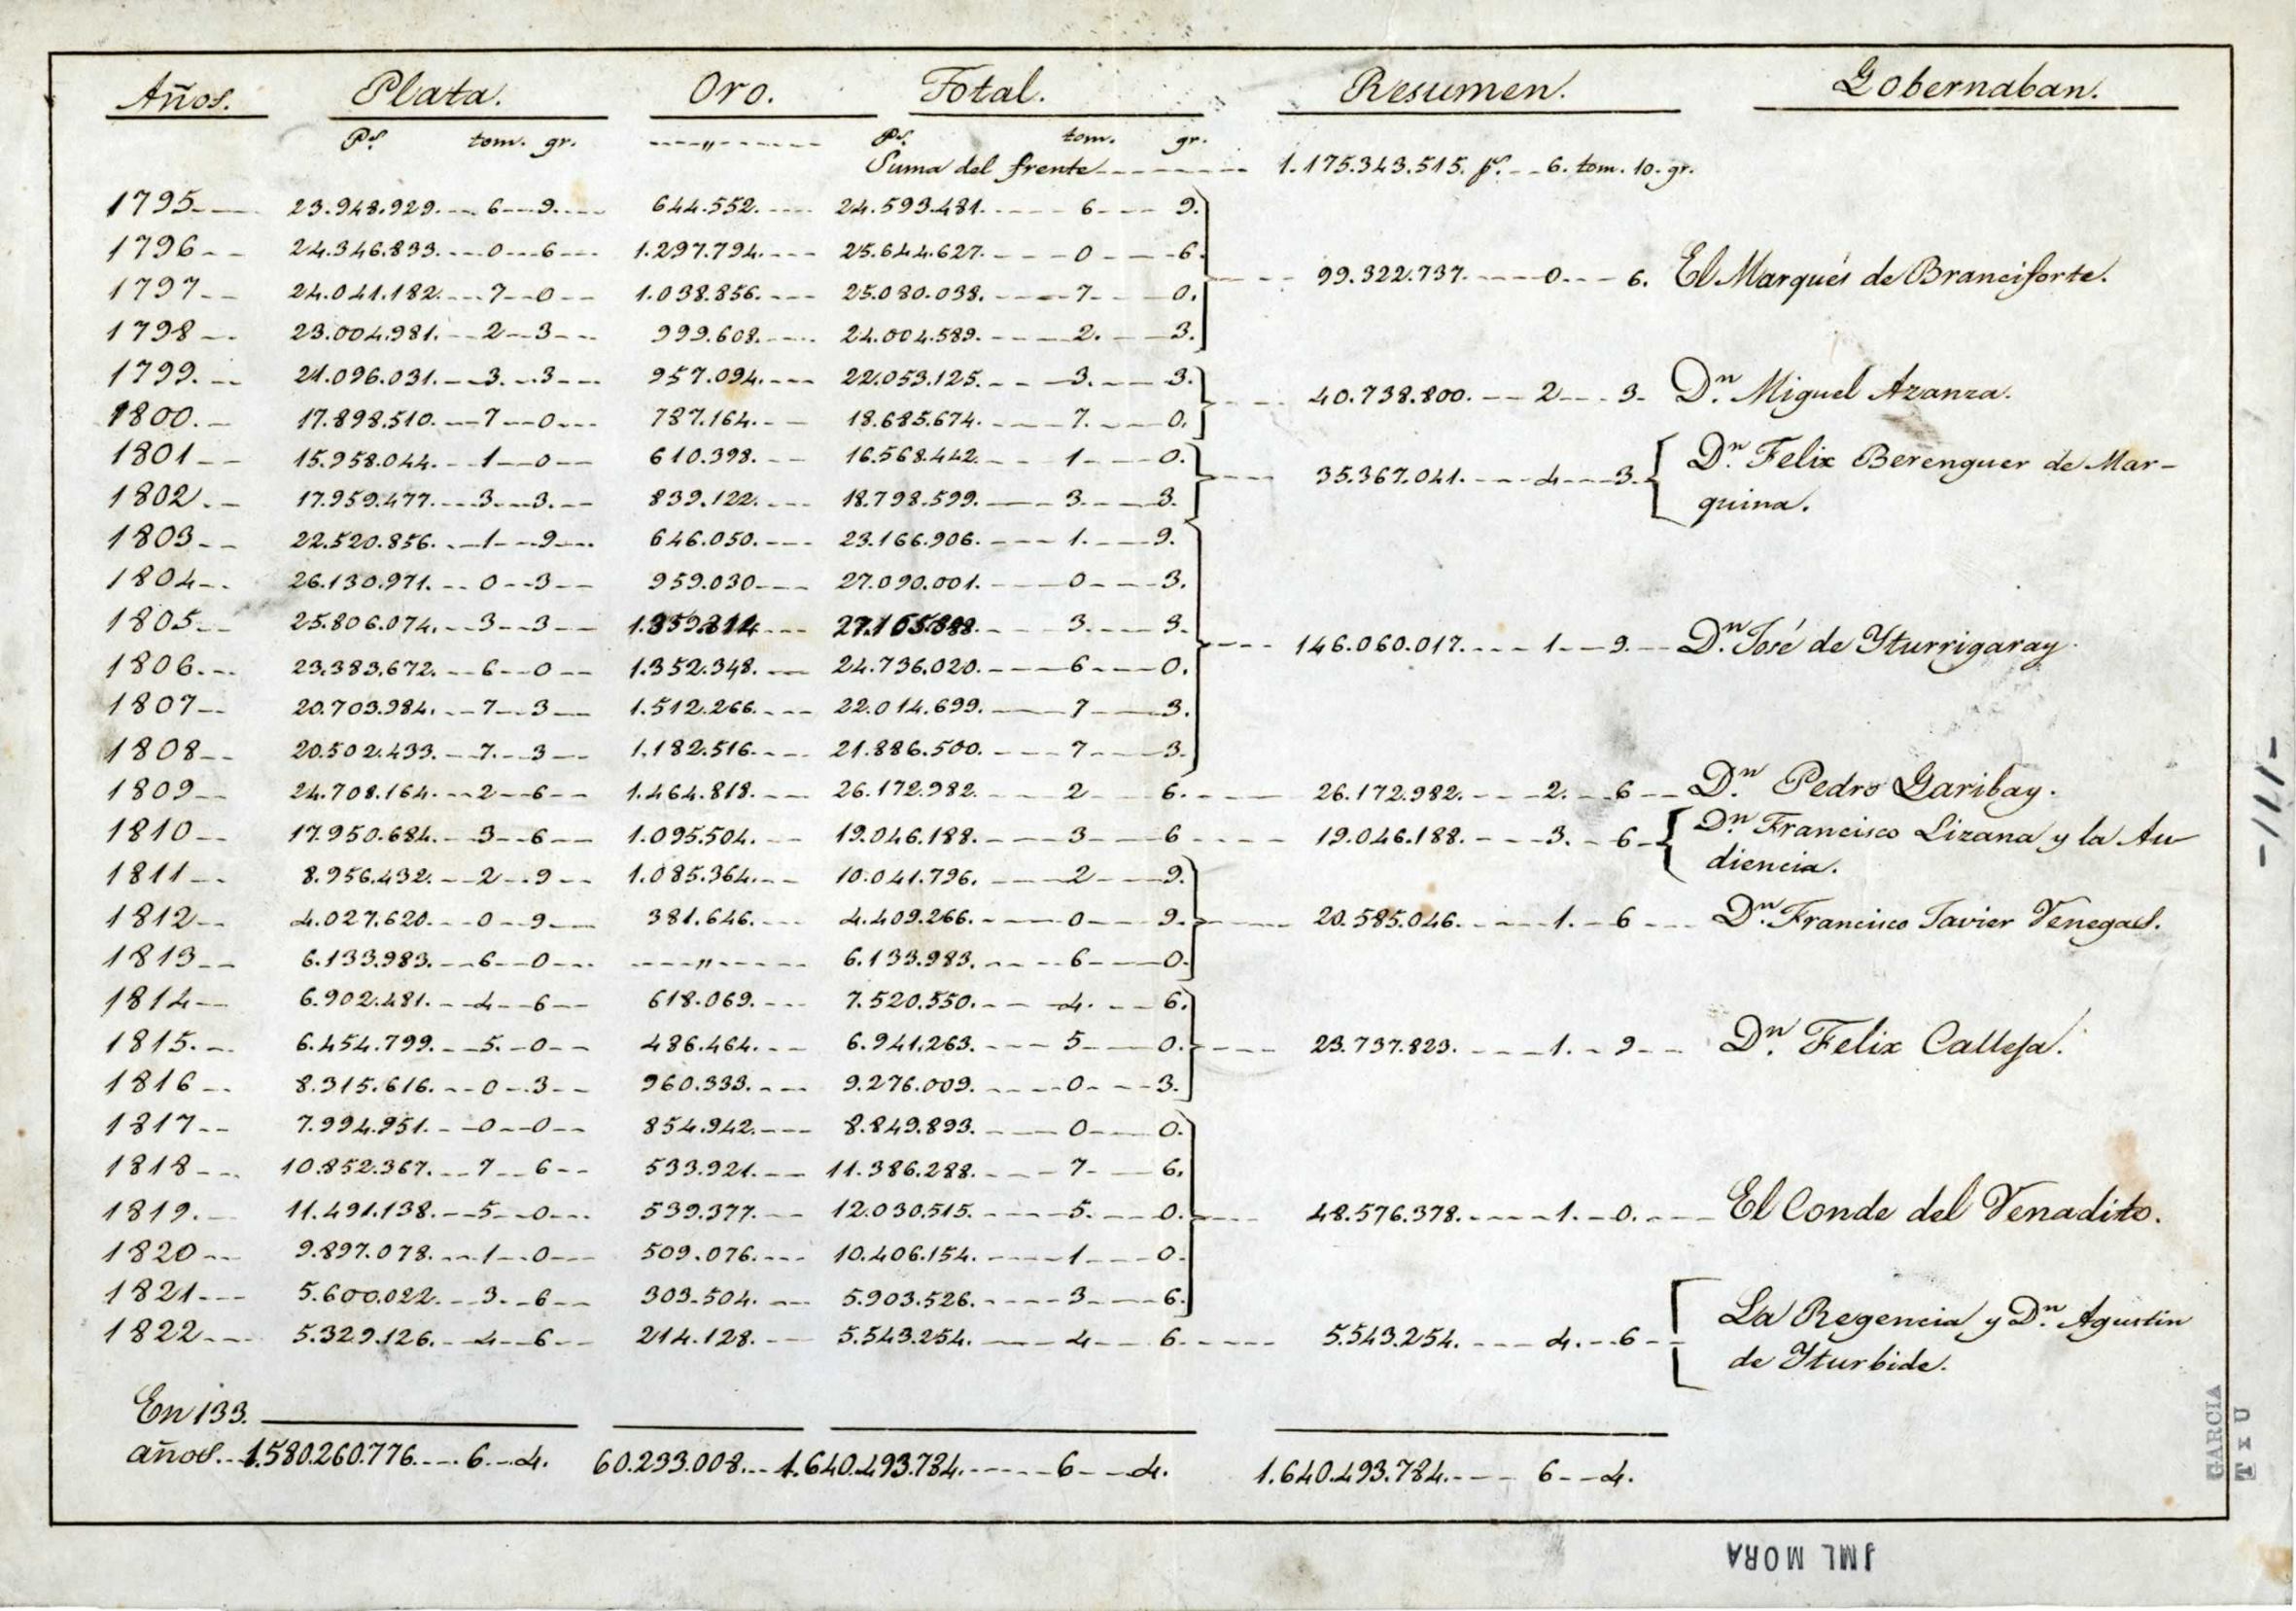 Años. Plata. Oro. Total. Resumen. Gobernaban.
Ps. tom. gr. ---"--- Ps. tom. gr.
Suma del frente 1.175.343.515. ps. 6. tom. 10. gr.
1795 23.948.929. 6 9. 644.552. 24.593.481. 6 9.
1796 24.346.833. 0 6 1.297.794. 25.644.627. 0 6
99.322.737. 0 6. El Marqués de Branciforte.
1797 24.041.182. 7 0 1.038.856. 25.080.038. 7. 0.
1798 23.004.981. 2 3 999.608. 24.004.589. 2. 3.
1799. 21.096.031. 3. 3 957.094. 22.053.125. 3. 3.
40.738.800. 2 3. Dn. Miguel Azanza.
1800. 17.898.510. 7 0 787.164. 18.685.674. 7. 0.
1801 15.958.044. 1 0 610.398. 16.568.442. 1 0.
35.367.041. 4 3. Dn. Felix Berenguer de Mar-
1802. 17.959.477. 3 3. 839.122. 18.798.599. 3. 3.
quina.
1803 22.520.856. 1 9 646.050. 23.166.906. 1. 9.
1804 26.130.971. 0 3 959.030 27.090.001. 0 3.
1805 25.806.074. 3 3 1.359.814 27.165.888. 3. 3.
146.060.017. 1 9. Dn. José de Yturrigaray.
1806. 23.383.672. 6 0 1.352.348. 24.736.020. 6 0.
1807 20.703.984. 7 3 1.512.266. 22.014.699. 7 3.
1808 20.502.433. 7. 3 1.182.516. 21.886.500. 7 3.
1809 24.708.164. 2 6 1.464.818. 26.172.982. 2 6. 26.172.982. 2. 6 Dn. Pedro Garibay.
1810 17.950.684. 3 6 1.095.504. 19.046.188. 3 6 19.046.188. 3. 6 Dn. Francisco Lizana y la Au
diencia.
1811 8.956.432. 2 9 1.085.364. 10.041.796. 2 9.
1812 4.027.620. 0 9. 381.646. 4.409.266. 0 9. 20.585.046. 1. 6 Dn. Francisco Javier Venegas.
1813 6.133.983. 6 0 ---"--- 6.133.983. 6 0.
1814 6.902.481. 4 6 618.069. 7.520.550. 4. 6.
1815. 6.454.799. 5. 0 486.464. 6.941.263. 5 0. 23.737.823. 1. 9 Dn. Felix Calleja.
1816 8.315.616. 0 3 960.393. 9.276.009. 0 3.
1817 7.994.951. 0 0 854.942. 8.849.893. 0 0.
1818 10.852.367. 7 6 533.921. 11.386.288. 7 6.
1819. 11.491.138. 5 0 539.377. 12.030.515. 5. 0. 48.576.378. 1. 0. El Conde del Venadito.
1820 9.897.078. 1 0 509.076. 10.406.154. 1 0.
1821 5.600.022. 3. 6 303.504. 5.903.526. 3 6.
La Regencia y Dn. Agustin
1822 5.329.126. 4 6 214.128. 5.543.254. 4 6. 5.543.254. 4. 6
de Yturbide.
En 133.
años. 1.580.260.776. 6 4. 60.233.008. 1.640.493.784. 6 4. 1.640.493.784. 6 4.
-111-
GARCIA
T x U
JML MORA